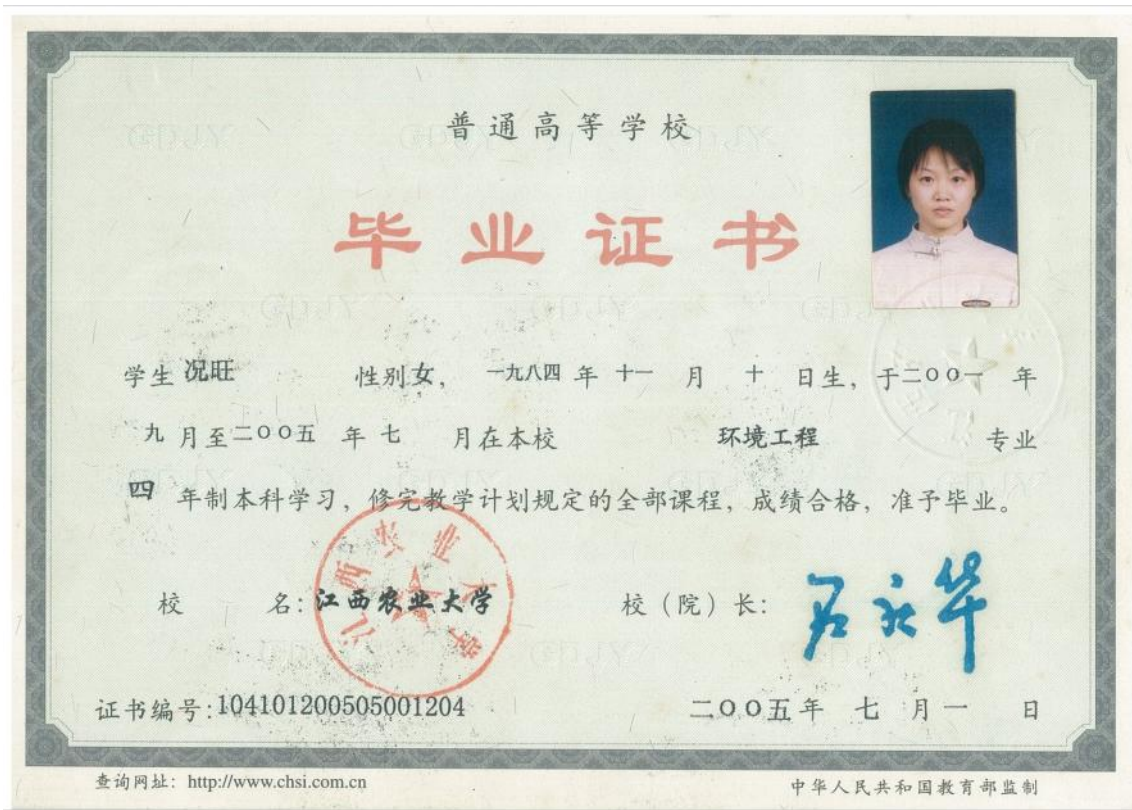 普通高等学校
毕业证书
学生 况旺 性别 女， 一九八四 年 十一 月 十 日生，于二〇〇一 年
九 月至 二〇〇五 年 七 月在本校 环境工程 专业
四 年制本科学习，修完教学计划规定的全部课程，成绩合格，准予毕业。
校 名：江西农业大学 校（院）长：
江西农业大学
证书编号：104101200505001204 二〇〇五年 七 月 一 日
查询网址：http://www.chsi.com.cn 中华人民共和国教育部监制